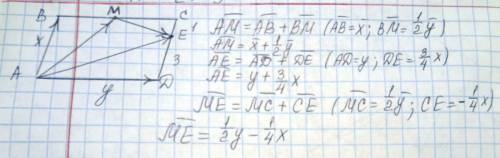 B M C
E 1
x
3
A D
y
AM = AB + BM (AB = x; BM = 1/2 y)
AM = x + 1/2 y
AE = AD + DE (AD = y; DE = 3/4 x)
AE = y + 3/4 x
ME = MC + CE (MC = 1/2 y; CE = -1/4 x)
ME = 1/2 y - 1/4 x